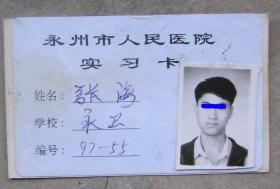 永州市人民医院
实习卡
姓名：张海
学校：永卫
编号：97-55